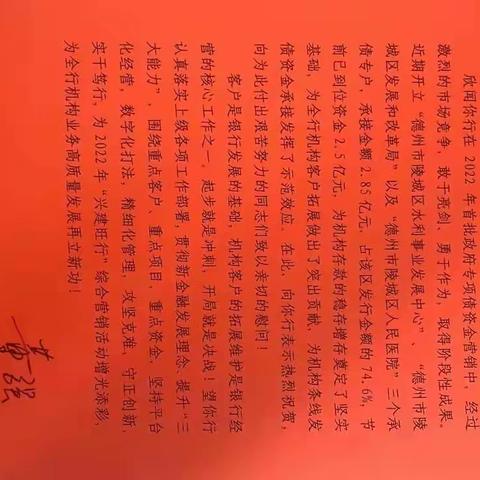 欣闻你行在 2022 年首批政府专项债资金营销中，经过
激烈的市场竞争，敢于亮剑、勇于作为，取得阶段性成果。
近期开立“德州市陵城区水利事业发展中心”、“德州市陵
城区发展和改革局”以及“德州市陵城区人民医院”三个承
债专户，承接金额 2.85 亿元，占该区发行金额的 74.6%，节
前已到位资金 2.5 亿元，为机构存款的稳存增存奠定了坚实
基础，为全行机构客户拓展做出了突出贡献，为机构条线发
债资金承接发挥了示范效应。在此，向你行表示热烈祝贺，
向为此付出艰苦努力的同志们致以亲切的慰问！
客户是银行发展的基础，机构客户的拓展维护是银行经
营的核心工作之一，起步就是冲刺，开局就是决战！望你行
认真落实上级各项工作部署，贯彻新金融发展理念，提升“三
大能力”，围绕重点客户、重点项目、重点资金，坚持平台
化经营，数字化打法，精细化管理，攻坚克难，守正创新，
实干笃行，为 2022 年“兴建旺行”综合营销活动增光添彩，
为全行机构业务高质量发展再立新功！